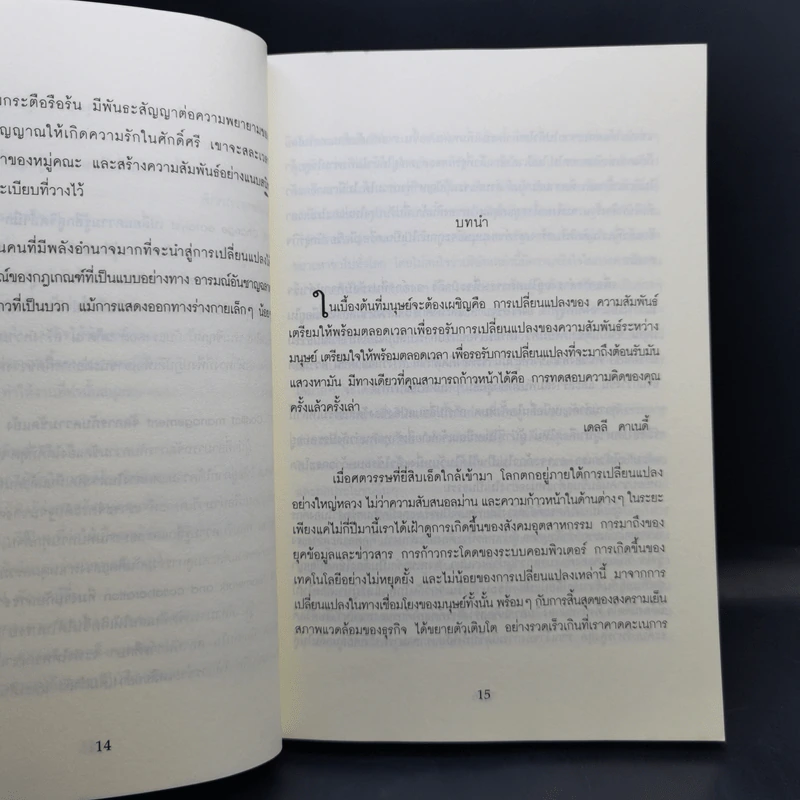 กระตือรือร้น มีพันธะสัญญาต่อความพยายาม
ญญาณให้เกิดความรักในศักดิ์ศรี เขาจะสละเว
าของหมู่คณะ และสร้างความสัมพันธ์อย่างแนบ
ะเบียบที่วางไว้
นคนที่มีพลังอำนาจมากที่จะนำสู่การเปลี่ยนแปลง
ณ์ของกฎเกณฑ์ที่เป็นแบบอย่างทาง อารมณ์อันชาญฉลา
าวที่เป็นบวก แม้การแสดงออกทางร่างกายเล็กๆ น้อย
14
บทนำ
ในเบื้องต้นที่มนุษย์จะต้องเผชิญคือ การเปลี่ยนแปลงของ ความสัมพันธ์
เตรียมให้พร้อมตลอดเวลาเพื่อรอรับการเปลี่ยนแปลงของความสัมพันธ์ระหว่าง
มนุษย์ เตรียมใจให้พร้อมตลอดเวลา เพื่อรอรับการเปลี่ยนแปลงที่จะมาถึงต้อนรับมัน
แสวงหามัน มีทางเดียวที่คุณสามารถก้าวหน้าได้คือ การทดสอบความคิดของคุณ
ครั้งแล้วครั้งเล่า
เดลลี คาเนดี้
เมื่อศตวรรษที่ยี่สิบเอ็ดใกล้เข้ามา โลกตกอยู่ภายใต้การเปลี่ยนแปลง
อย่างใหญ่หลวง ไม่ว่าความสับสนอลม่าน และความก้าวหน้าในด้านต่างๆ ในระยะ
เพียงแค่ไม่กี่ปีมานี้เราได้เฝ้าดูการเกิดขึ้นของสังคมอุตสาหกรรม การมาถึงของ
ยุคข้อมูลและข่าวสาร การก้าวกระโดดของระบบคอมพิวเตอร์ การเกิดขึ้นของ
เทคโนโลยีอย่างไม่หยุดยั้ง และไม่น้อยของการเปลี่ยนแปลงเหล่านี้ มาจากการ
เปลี่ยนแปลงในทางเชื่อมโยงของมนุษย์ทั้งนั้น พร้อมๆ กับการสิ้นสุดของสงครามเย็น
สภาพแวดล้อมของธุรกิจ ได้ขยายตัวเติบโต อย่างรวดเร็วเกินที่เราคาดคะเนการ
15